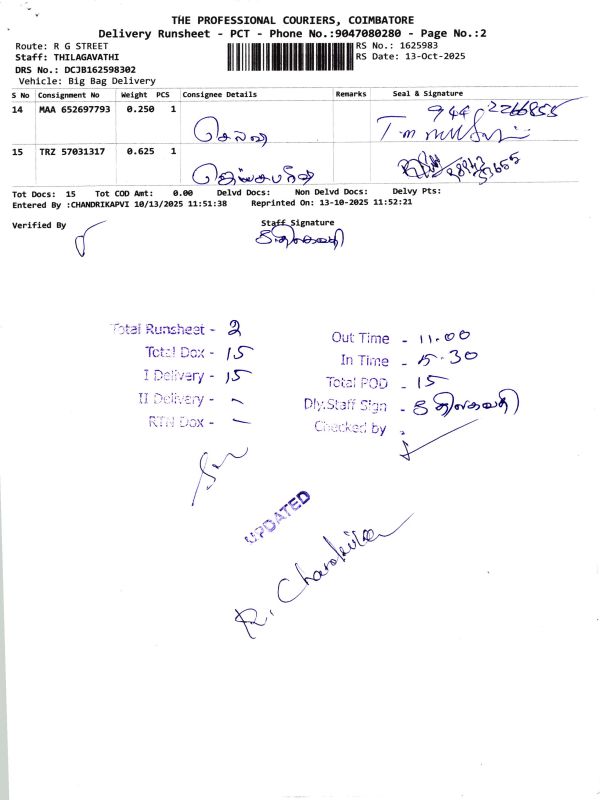 THE PROFESSIONAL COURIERS, COIMBATORE
Delivery Runsheet - PCT - Phone No.:9047080280 - Page No.:2
Route: R G STREET
RS No.: 1625983
Staff: THILAGAVATHI
RS Date: 13-Oct-2025
DRS No.: DCJB162598302
Vehicle: Big Bag Delivery
S No Consignment No Weight PCS Consignee Details Remarks Seal & Signature
14 MAA 652697793 0.250 1
செல்வி
15 TRZ 57031317 0.625 1
Tot Docs: 15 Tot COD Amt: 0.00 Delvd Docs: Non Delvd Docs: Delvy Pts:
Entered By :CHANDRIKAPVI 10/13/2025 11:51:38 Reprinted On: 13-10-2025 11:52:21
Verified By
Staff Signature
திலகவதி
Total Runsheet - 2
Out Time - 11.00
Total Dox - 15
In Time - 15.30
I Delivery - 15
Total POD - 15
II Delivery - -
Dly.Staff Sign - திலகவதி
RTN Dox - -
Checked by -
UPDATED